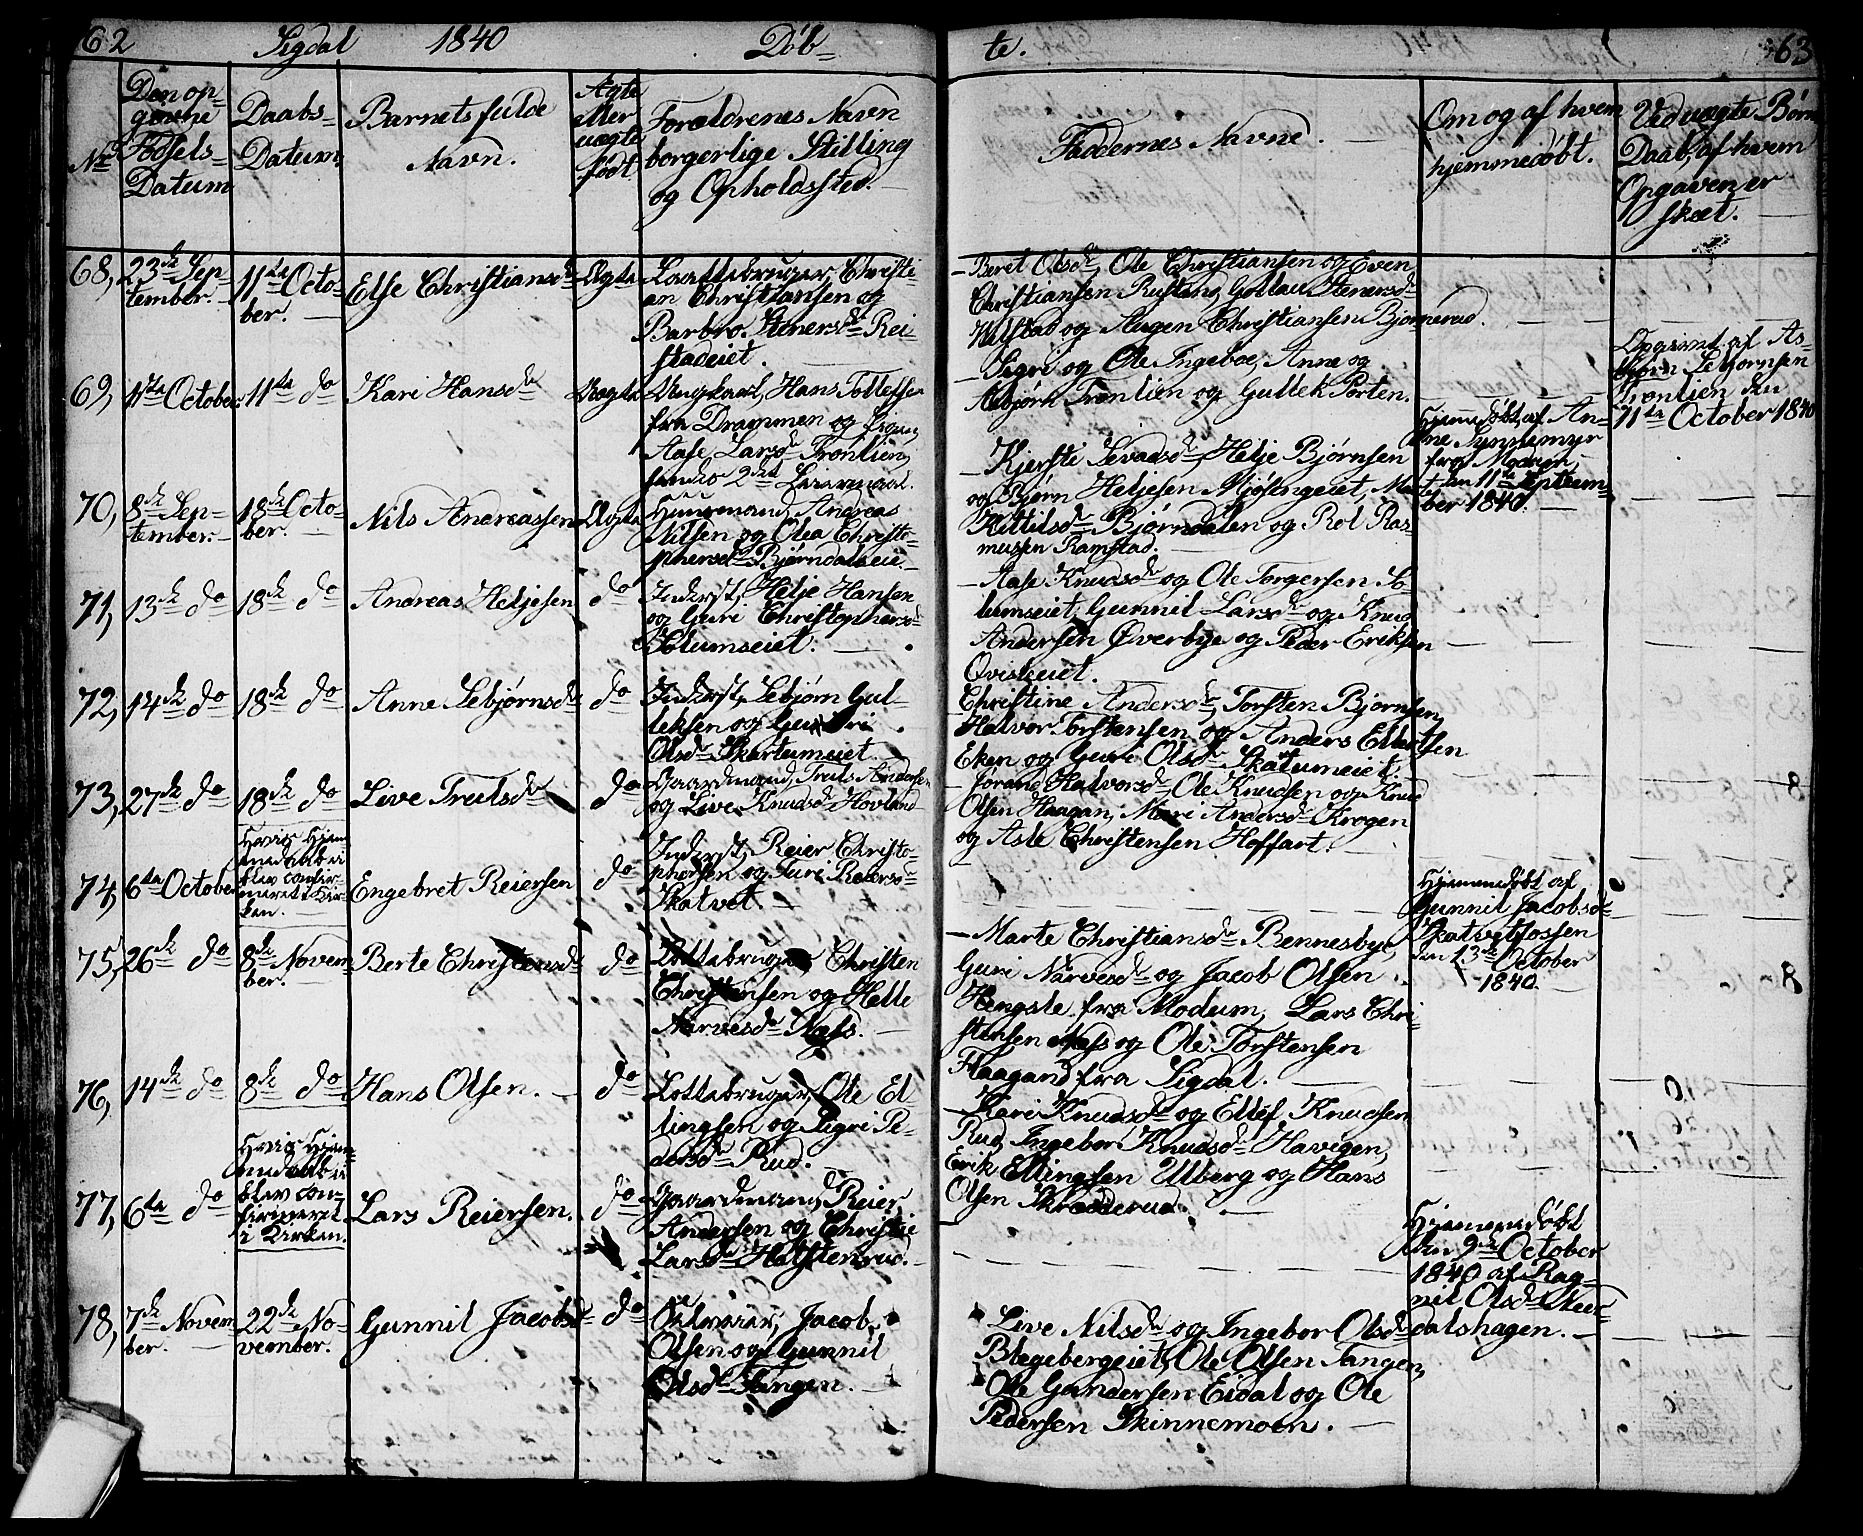 62 Sigdal 1840 Døb- te. 63
No
Den op-
givne
Fødsels-
Datum
Daabs-
Datum.
Barnets fulde
Navn.
Ægte
eller
uægte
født.
Forældrenes Navn
borgerlige Stilling
og Opholdssted.
Faddernes Navne.
Om og af hvem
hjemmedøbt.
Ved uægte Børns
Daab, af hvem
Opgaven er
skeet.
68, 23de Sep-
tember.
11te Octo-
ber.
Else Christiansdr
Ægte
Christi-
an Christiansen og
Barbro Stenersdr Rei-
stadeiet.
Beret Olsdr, Ole Christiansen og Even
Christiansen Rustang, Stenersdr
og Christiansen Bjørnerud.
69, 1ste October
11te do
Kari Hansdr
Uægte
Ungkarl, Hans Tollefsen
fra Drammen og Pigen
Aase Larsdr Trønlien,
2det Leiermaal.
Sigri og Ole Ingeboe, Anne og
Asbjørn Trønlien og Gullek Porten.
Opgivet af As-
bjørn Sebjørnsen
Trønlien den
11te October 1840
70, 8de Sep-
tember.
18de Octo-
ber.
Nils Andreassen
Ægte
Huusmand, Andreas
Nilsen og Olea Christo-
phersdr Bjørndalseie.
Kjersti Sevalsdr, Helje Bjørnsen
og Bjørn Heljesen Mjøsingeiet,
Kittilsdr Bjørndalen og Rol Ras-
musen Ramstad.
Hjemmedøbt af An-
ne
fra Moeren
den 11te Septem-
ber 1840.
71, 13de do
18de do
Andreas Heljesen
do
Inderst, Helje Hansen
og Guri Christophersdr
Solumseiet.
Aase Knudsdr og Ole Torgersen So-
lumseiet, Gunnil Larsdr og Knud
Andersen Øverbye og Peder Eriksen
Qvisleeiet.
72, 14de do
18de do
Anne Sebjørnsdr
do
Inderst, Sebjørn Gul-
leksen og Guri
Olsdr Skartumeiet.
Christine Andersdr, Torsten Bjørnsen,
Halvor Torstensen og Anders Ellefsen
Eken og Guri Olsdr Skatumeiet.
73, 27de do
18de do
Live Trulsdr
do
Gaardmand, Truls Andersen
og Live Knudsdr Hovland
Jørand Halvorsdr, Ole Knudsen og Knud
Olsen Haagan, Mari Andersdr Krogen
og Asle Christensen Hoffart.
74, 6te October
Hvis Hjem-
medaab ei
blev confir-
meret i Kir-
ken.
Engebret Reiersen
do
Inderst, Reier Christo-
phersen og Turi Reiersdr
Skatvet.
Hjemmedøbt af
Gunnil Jacobsdr
Skatvetfossen
den 13de October
1840.
75, 26de do
8de Novem-
ber.
Berte Christensdr
do
Lottebruger Christen
Christensen og Helle
Narvesdr Næss.
Marte Christiansdr Bennesbye,
Guri Narvesdr og Jacob Olsen
Hengsle fra Modum, Lars Chri-
stensen Næss og Ole Torstensen
Haagand fra Sigdal.
76, 14de do
8de do
Hans Olsen.
do
Lottebruger, Ole El-
lingsen og Sigri Pe-
dersdr Rud.
Kari Knudsdr og Ellef Knudsen
Rud, Ingebor Knudsdr Havigen,
Erik Ellingsen Ulberg og Hans
Olsen Skredderud.
77, 6te do
Hvis Hjem-
medaab ei
blev con-
firmeret
i Kirken.
Lars Reiersen.
do
Gaardmand, Reier
Andersen og Christie
Larsdr Halstenrud.
Hjemmedøbt
den 9de October
1840 af Rag-
nil Olsdr
dalshagen.
78, 7de Novem-
ber.
22de No-
vember.
Gunnil Jacobsdr
do
Selveier, Jacob
Olsen og Gunnil
Olsdr Tangen.
Live Nilsdr og Ingebor Olsdr
Blegebergeiet, Ole Olsen Tangen,
Ole Gundersen Eidal og Ole
Pedersen Skinnemoen.